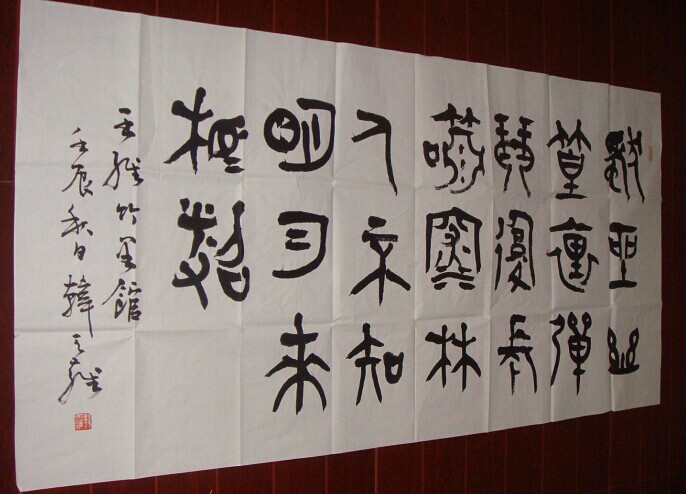 獨坐幽
篁裏彈
琴復長
嘯深林
人不知
明月來
相照
王維竹里館
壬辰秋日韓